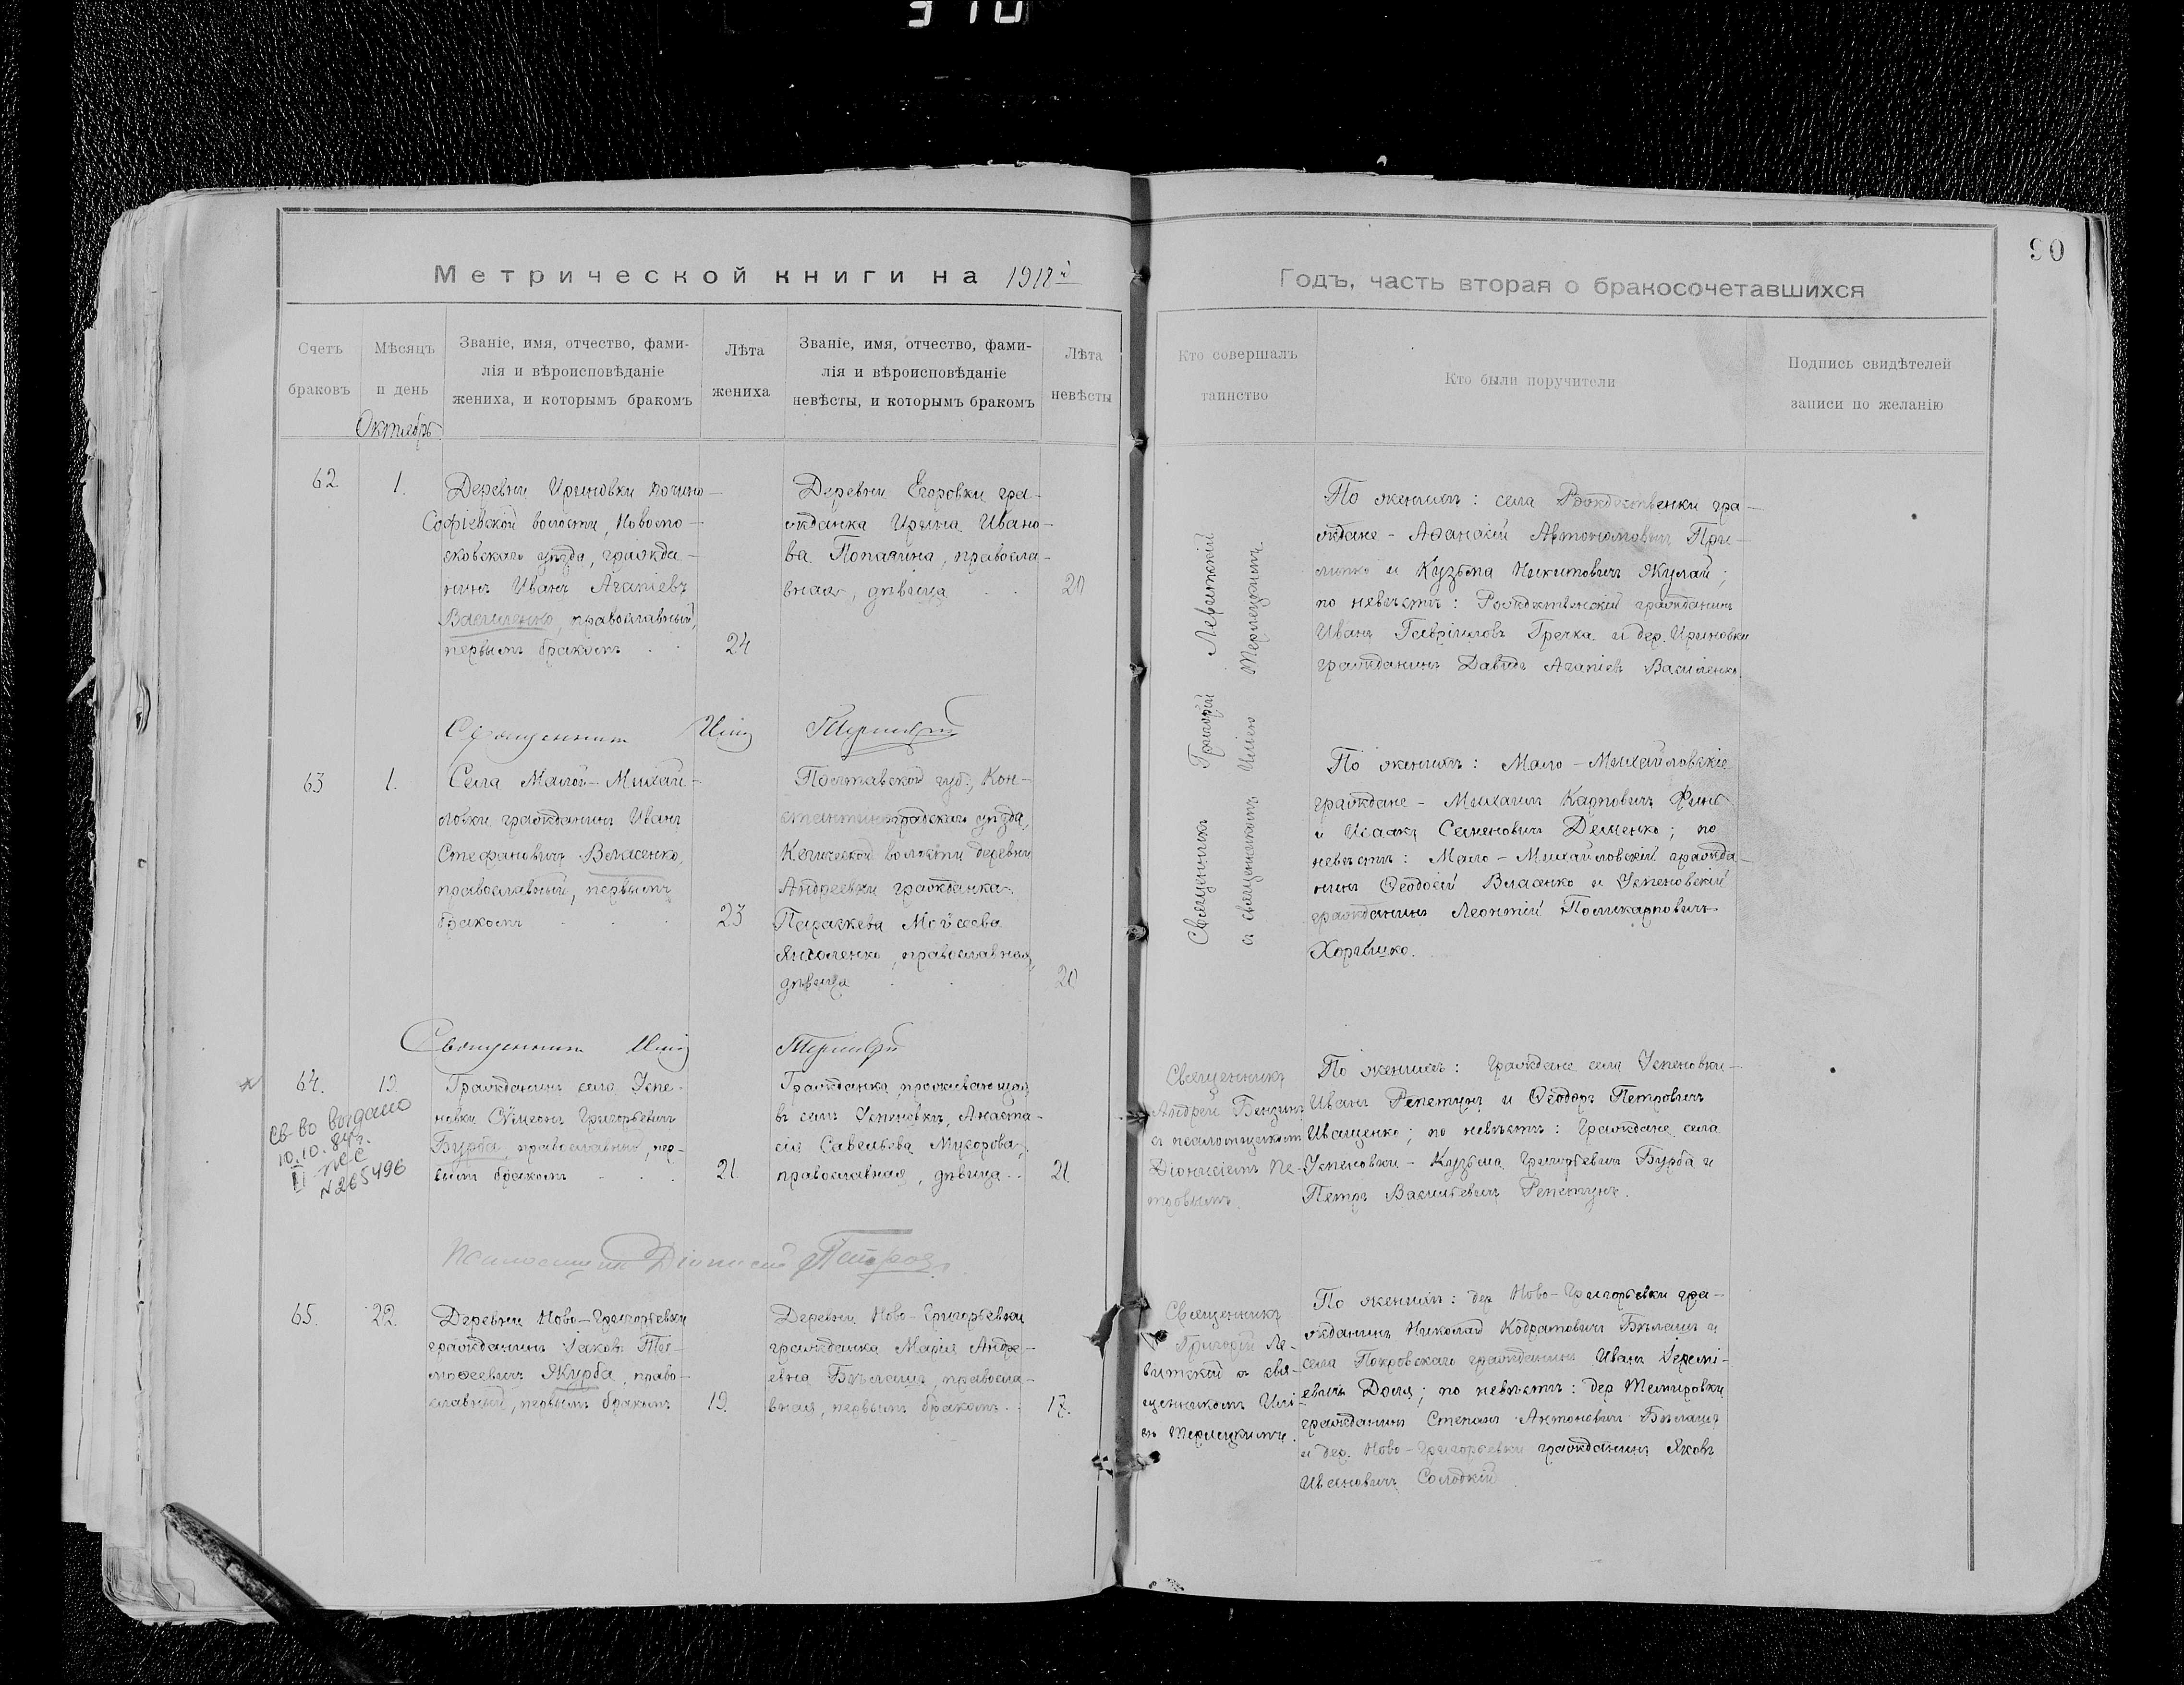 310
90
Метрической книги на 1918й
Годъ, часть вторая о бракосочетавшихся
Счетъ браковъ
Мѣсяцъ и день
Званіе, имя, отчество, фами-
лія и вѣроисповѣданіе
жениха, и которымъ бракомъ
Лѣта жениха
Званіе, имя, отчество, фами-
лія и вѣроисповѣданіе
невѣсты, и которымъ бракомъ
Лѣта невѣсты
Кто совершалъ таинство
Кто были поручители
Подпись свидѣтелей
записи по желанію
Октябрь
62
1.
Деревни Ириновки
Софіевской волости, Новомо-
сковскаго уѣзда, гражда-
нинъ Иванъ Агапіевъ
Василенко, православный,
первымъ бракомъ
24
Деревни Егоровки гра-
жданка Ирина Ивано-
ва, правосла-
вная, дѣвица
20
Священникъ Григорій Левитскій
съ священникомъ Иліею Терлецкимъ.
По женихѣ: села Рождественки гра-
ждане - Афанасій Автономовичъ При-
липко и Кузьма Никитовичъ Жулай;
по невѣстѣ: Рождественскій гражданинъ
Иванъ Гавріиловъ Гречка и дер. Ириновки
гражданинъ Давидъ Агапіевъ Василенко.
Священникъ Илія Терлецкій
63
1.
Села Мало-Михай-
ловки гражданинъ Иванъ
Стефановичъ Власенко,
православный, первымъ
бракомъ
23
Полтавской губ., Кон-
стантиноградскаго уѣзда,
Кегичевской волости деревни
Андреевки гражданка
Параскева Моисеева
православная,
дѣвица
20
По женихѣ: Мало-Михайловскіе
граждане - Михаилъ Карповичъ
и Исаакъ Семеновичъ Деменко; по
невѣстѣ: Мало-Михайловскій гражда-
нинъ Ѳеодосій Власенко и Успеновскій
гражданинъ Леонтій Поликарповичъ
Священникъ Илія Терлецкій
64.
19.
Св-во выдано
10.10.84г.
№265496
Гражданинъ села Успе-
новки Сѵмеонъ Григорьевичъ
Бурба, православный, пер-
вымъ бракомъ
21
Гражданка, проживающая
въ селѣ Успеновкѣ, Анаста-
сія Савельева
православная, дѣвица
21
Священникъ
Андрей Бензинъ
съ псаломщикомъ
Діонисіемъ Пе-
тровымъ.
По женихѣ: Граждане села Успеновки -
Иванъ Репетунъ и Ѳеодоръ Петровичъ
Иващенко; по невѣстѣ: Граждане села
Успеновки - Кузьма Григорьевичъ Бурба и
Петръ Васильевичъ Репетунъ.
Псаломщикъ Діонисій Петровъ
65.
22.
Деревни Ново-Григорьевки
гражданинъ Іаковъ Ти-
моѳеевичъ Журба, право-
славный, первымъ бракомъ
19.
Деревни Ново-Григорьевки
гражданка Марія Андре-
евна Бѣлашъ, правосла-
вная, первымъ бракомъ
17.
Священникъ
Григорій Ле-
витскій съ свя-
щенникомъ Илі-
ею Терлецкимъ.
По женихѣ: дер. Ново-Григорьевки гра-
жданинъ Николай Кодратовичъ Бѣлашъ и
села Покровскаго гражданинъ Иванъ Іеремі-
евичъ Доля; по невѣстѣ: дер. Темировки
гражданинъ Степанъ Антоновичъ Бѣлашъ
и дер. Ново-Григорьевки гражданинъ Яковъ
Ивановичъ Солодкій.